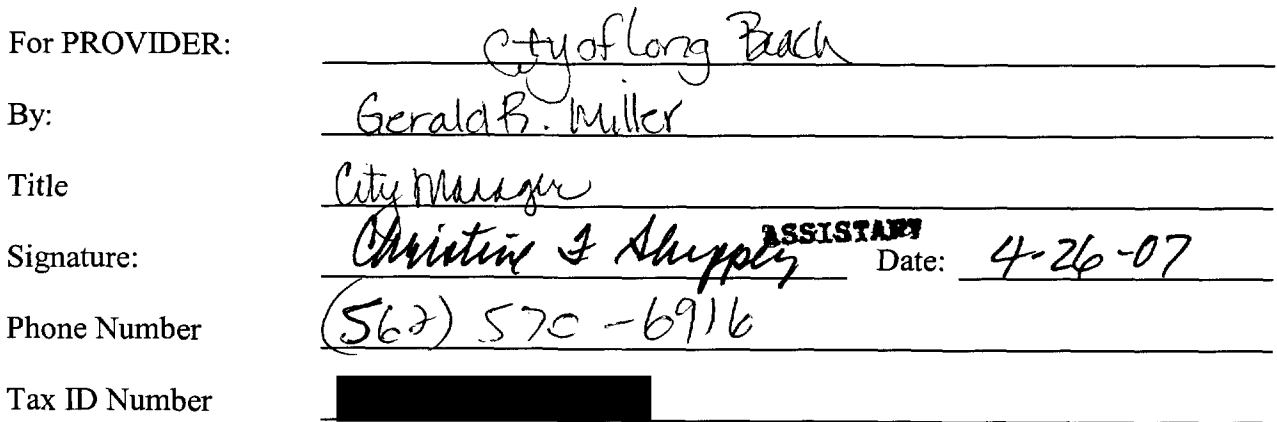 For PROVIDER: City of Long Beach
By: Gerald R. Miller
Title City Manager
Signature: Christine F Shippey ASSISTANT Date: 4-26-07
Phone Number (562) 570-6916
Tax ID Number